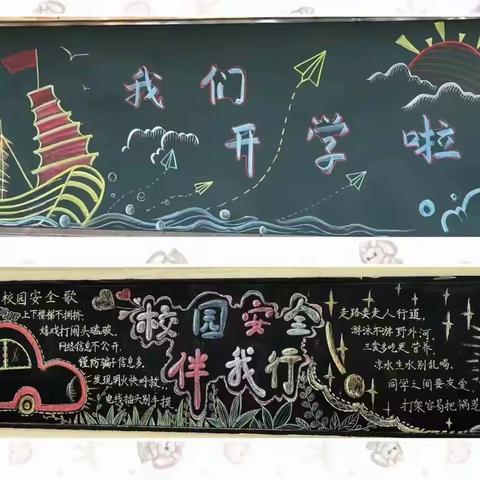 我们
开学啦
校园安全歌
上下楼梯不拥挤,
嬉戏打闹头磕破。
网络信息不公开,
谨防骗子信息多。
发现明火快呼救,
电线插头别手摸
校园安全
伴我行
走路要走人行道,
游泳不择野外河。
三餐多吃更营养,
凉水生水别乱喝。
同学之间要友爱,
打架容易把祸惹